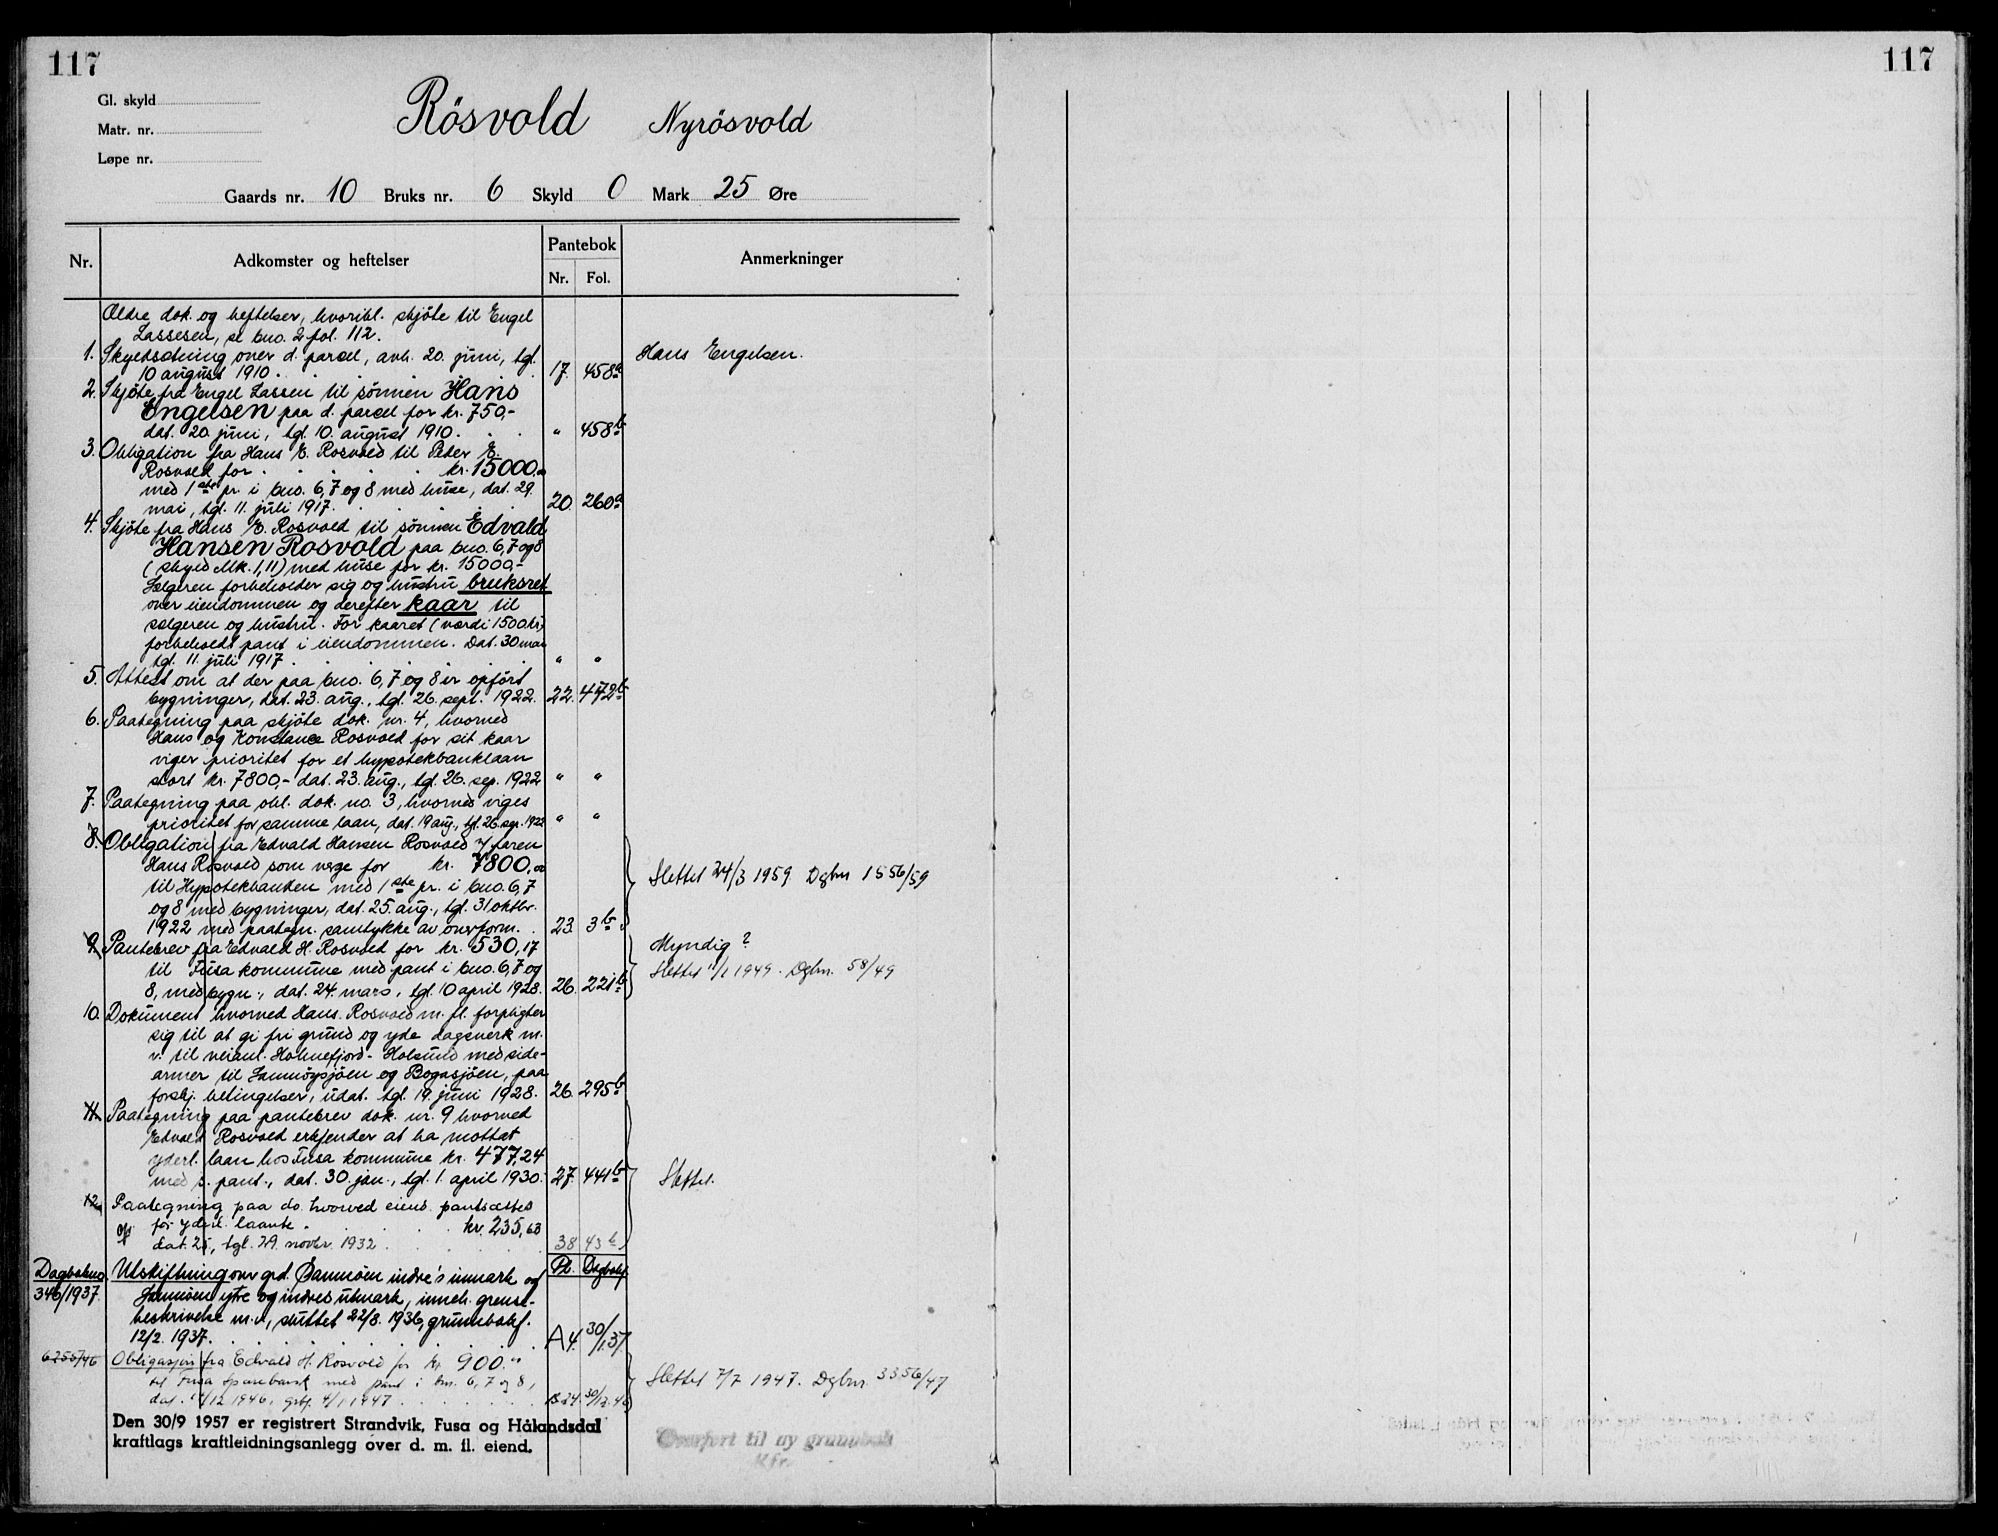 117
117
Gl. skyld
Matr. nr.
Løpe nr.
Rösvold Nyrösvold
Gaards nr. 10 Bruks nr. 6 Skyld 0 Mark 25 Øre
Nr. Adkomster og heftelser Pantebok Anmerkninger
Nr. Fol.
Ældre dok. og heftelser, hvoribl. skjöte til Engel
Lassesen, se bno. 2 fol. 112.
1. Skyldsætning over d. parcel, avh. 20. juni, tgl. Hans Engelsen.
10 august 1910. 17. 458a
2. Skjöte fra Engel Lassen til sönnen Hans
Engelsen paa d. parcel for kr. 750,-
dat. 20. juni, tgl. 10. august 1910. " 458b
3. Obligation fra Hans E. Rosvold til Peter E.
Rosvold for kr. 15000,00
med 1ste pr. i bno. 6, 7 og 8 med huse, dat. 29.
mai, tgl. 11. juli 1917. 20. 260a
4. Skjöte fra Hans E. Rosvold til sönnen Edvald
Hansen Rosvold paa bno. 6, 7 og 8
(skyld Mk. 1,11) med huse for kr. 15000,-
Sælgeren forbeholder sig og hustru bruksret
over eiendommen og derefter kaar til
sælgeren og hustru. For kaaret (værdi 1500 kr)
forbeholdt pant i eiendommen. Dat. 30 mai
tgl. 11. juli 1917. " "
5. Attest om at der paa bno. 6, 7 og 8 er opfört
bygninger, dat. 23. aug., tgl. 26. sept. 1922. 22. 472b
6. Paategning paa skjöte dok. nr. 4, hvorved
Hans og Konstance Rosvold for sit kaar
viger prioritet for et hypotekbanklaan
stort kr. 7800,- dat. 23. aug., tgl. 26. sep. 1922 " "
7. Paategning paa obl. dok. no. 3, hvorved viges
prioritet for samme laan, dat. 19 aug., tgl. 26. sep. 1922 " "
8. Obligation fra Edvald Hansen Rosvold m/ faren
Hans Rosvold som verge for kr. 7800,00
til Hypotekbanken med 1ste pr. i bno. 6, 7 Slettet 24/3 1959 Dgbnr 1556/59
og 8 med bygninger, dat. 25. aug., tgl. 31 oktbr.
1922 med paategn. samtykke av overform. 23. 3b
9. Pantebrev fra Edvald H. Rosvold for kr. 530,17 Myndig?
til Fusa kommune med pant i bno. 6, 7 og Slettet 11/1 1949. Dgbnr. 58/49
8, med bygn., dat. 24. mars, tgl. 10 april 1928. 26. 221b
10. Dokument hvorved Hans. Rosvold m. fl. forpligter
sig til at gi fri grund og yde dagsverk m.
v. til veianl. Holmefjord - Holsund med side-
armer til Samnøysjöen og Bogasjöen, paa
forskj. betingelser, udat. tgl. 19. juni 1928. 26. 295b
11. Paategning paa pantebrev dok. nr. 9 hvorved
Edvald Rosvold erkjender at ha mottat
yderl. laan hos Fusa kommune kr. 477,24
med s. pant., dat. 30. jan., tgl. 1. april 1930. 27. 441b Slettet.
12. Paategning paa do. hvorved eiend. pantsættes
for yderl. laante kr. 235,63
dat. 25, tgl. 29. novbr. 1932 38 43b
Dagbokno. Utskiftning over grd. Samnöen indre's inmark og Pb. Dagbokf.
346/1937. Samnöen ytre og indres utmark, inneh. grense-
beskrivelse m.v., sluttet 22/8. 1936, grunnbokf.
12/2. 1937. A 4. 30/1.37
6255/46 Obligasjon fra Edvald H. Rosvold for kr. 900.00
til Fusa Sparebank med pant i bnr. 6, 7 og 8, Slettet 7/7 1947. Dgbnr. 3356/47
dat. 14/12 1946, grbf. 4/1 1947 B 24. 30/12.46
Den 30/9 1957 er registrert Strandvik, Fusa og Hålandsdal
kraftlags kraftleidningsanlegg over d. m. fl. eiend.
Overført til ny grunnbok
Kfr.